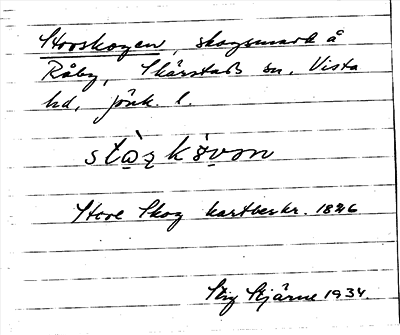 Storskogen, skogsmark å
Råby, Skärstads sn. Vista
hd, Jönk. l.
Store Skog kartbeskr. 1826
Stig Stjärne 1934.